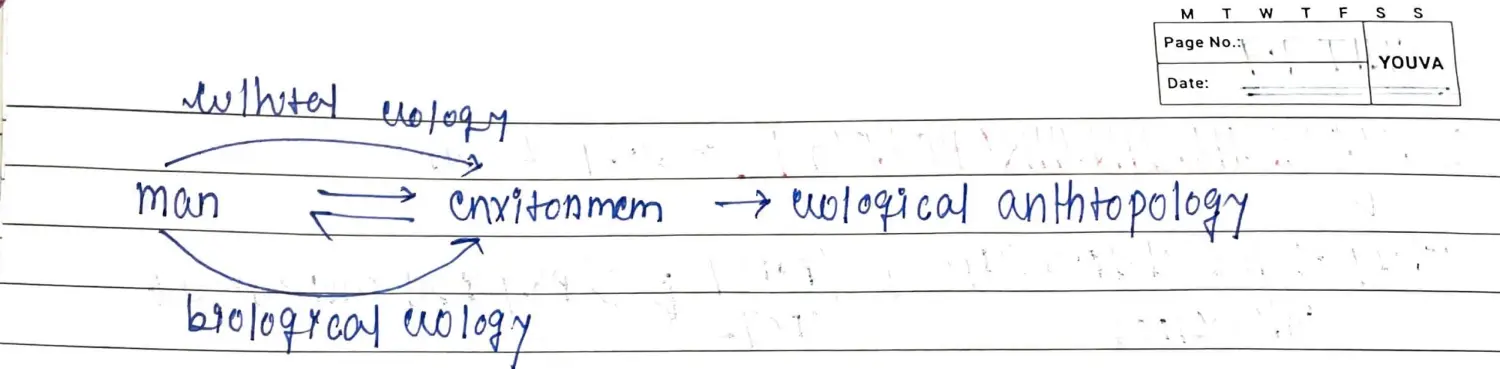 M T W T F S S
Page No.:
YOUVA
Date:
cultural ecology
man ⇌ environmem → ecological anthropology
biological ecology